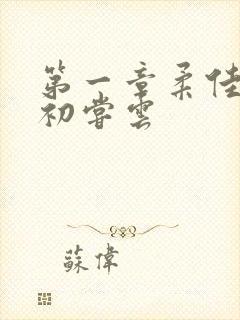 第一章柔佳
初嘗雲
蘇偉